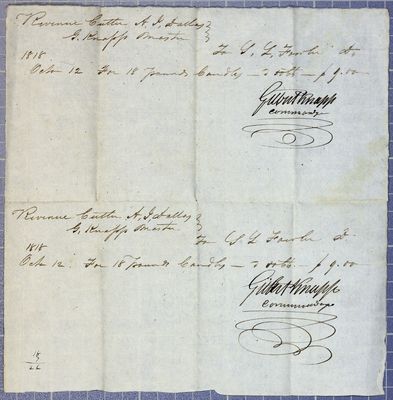 Revenue Cutter A. J. Dallas
G. Knapp Master
To S. L. Fowle Dr
1818
Octr 12 For 18 pounds Candles — cts — $ 9.00
Gilbert Knapp
commander
Revenue Cutter A. J. Dallas
G. Knapp Master
To S L Fowle Dr
1818
Octr 12 For 18 pounds Candles — cts — $ 9.00
Gilbert Knapp
commander
18